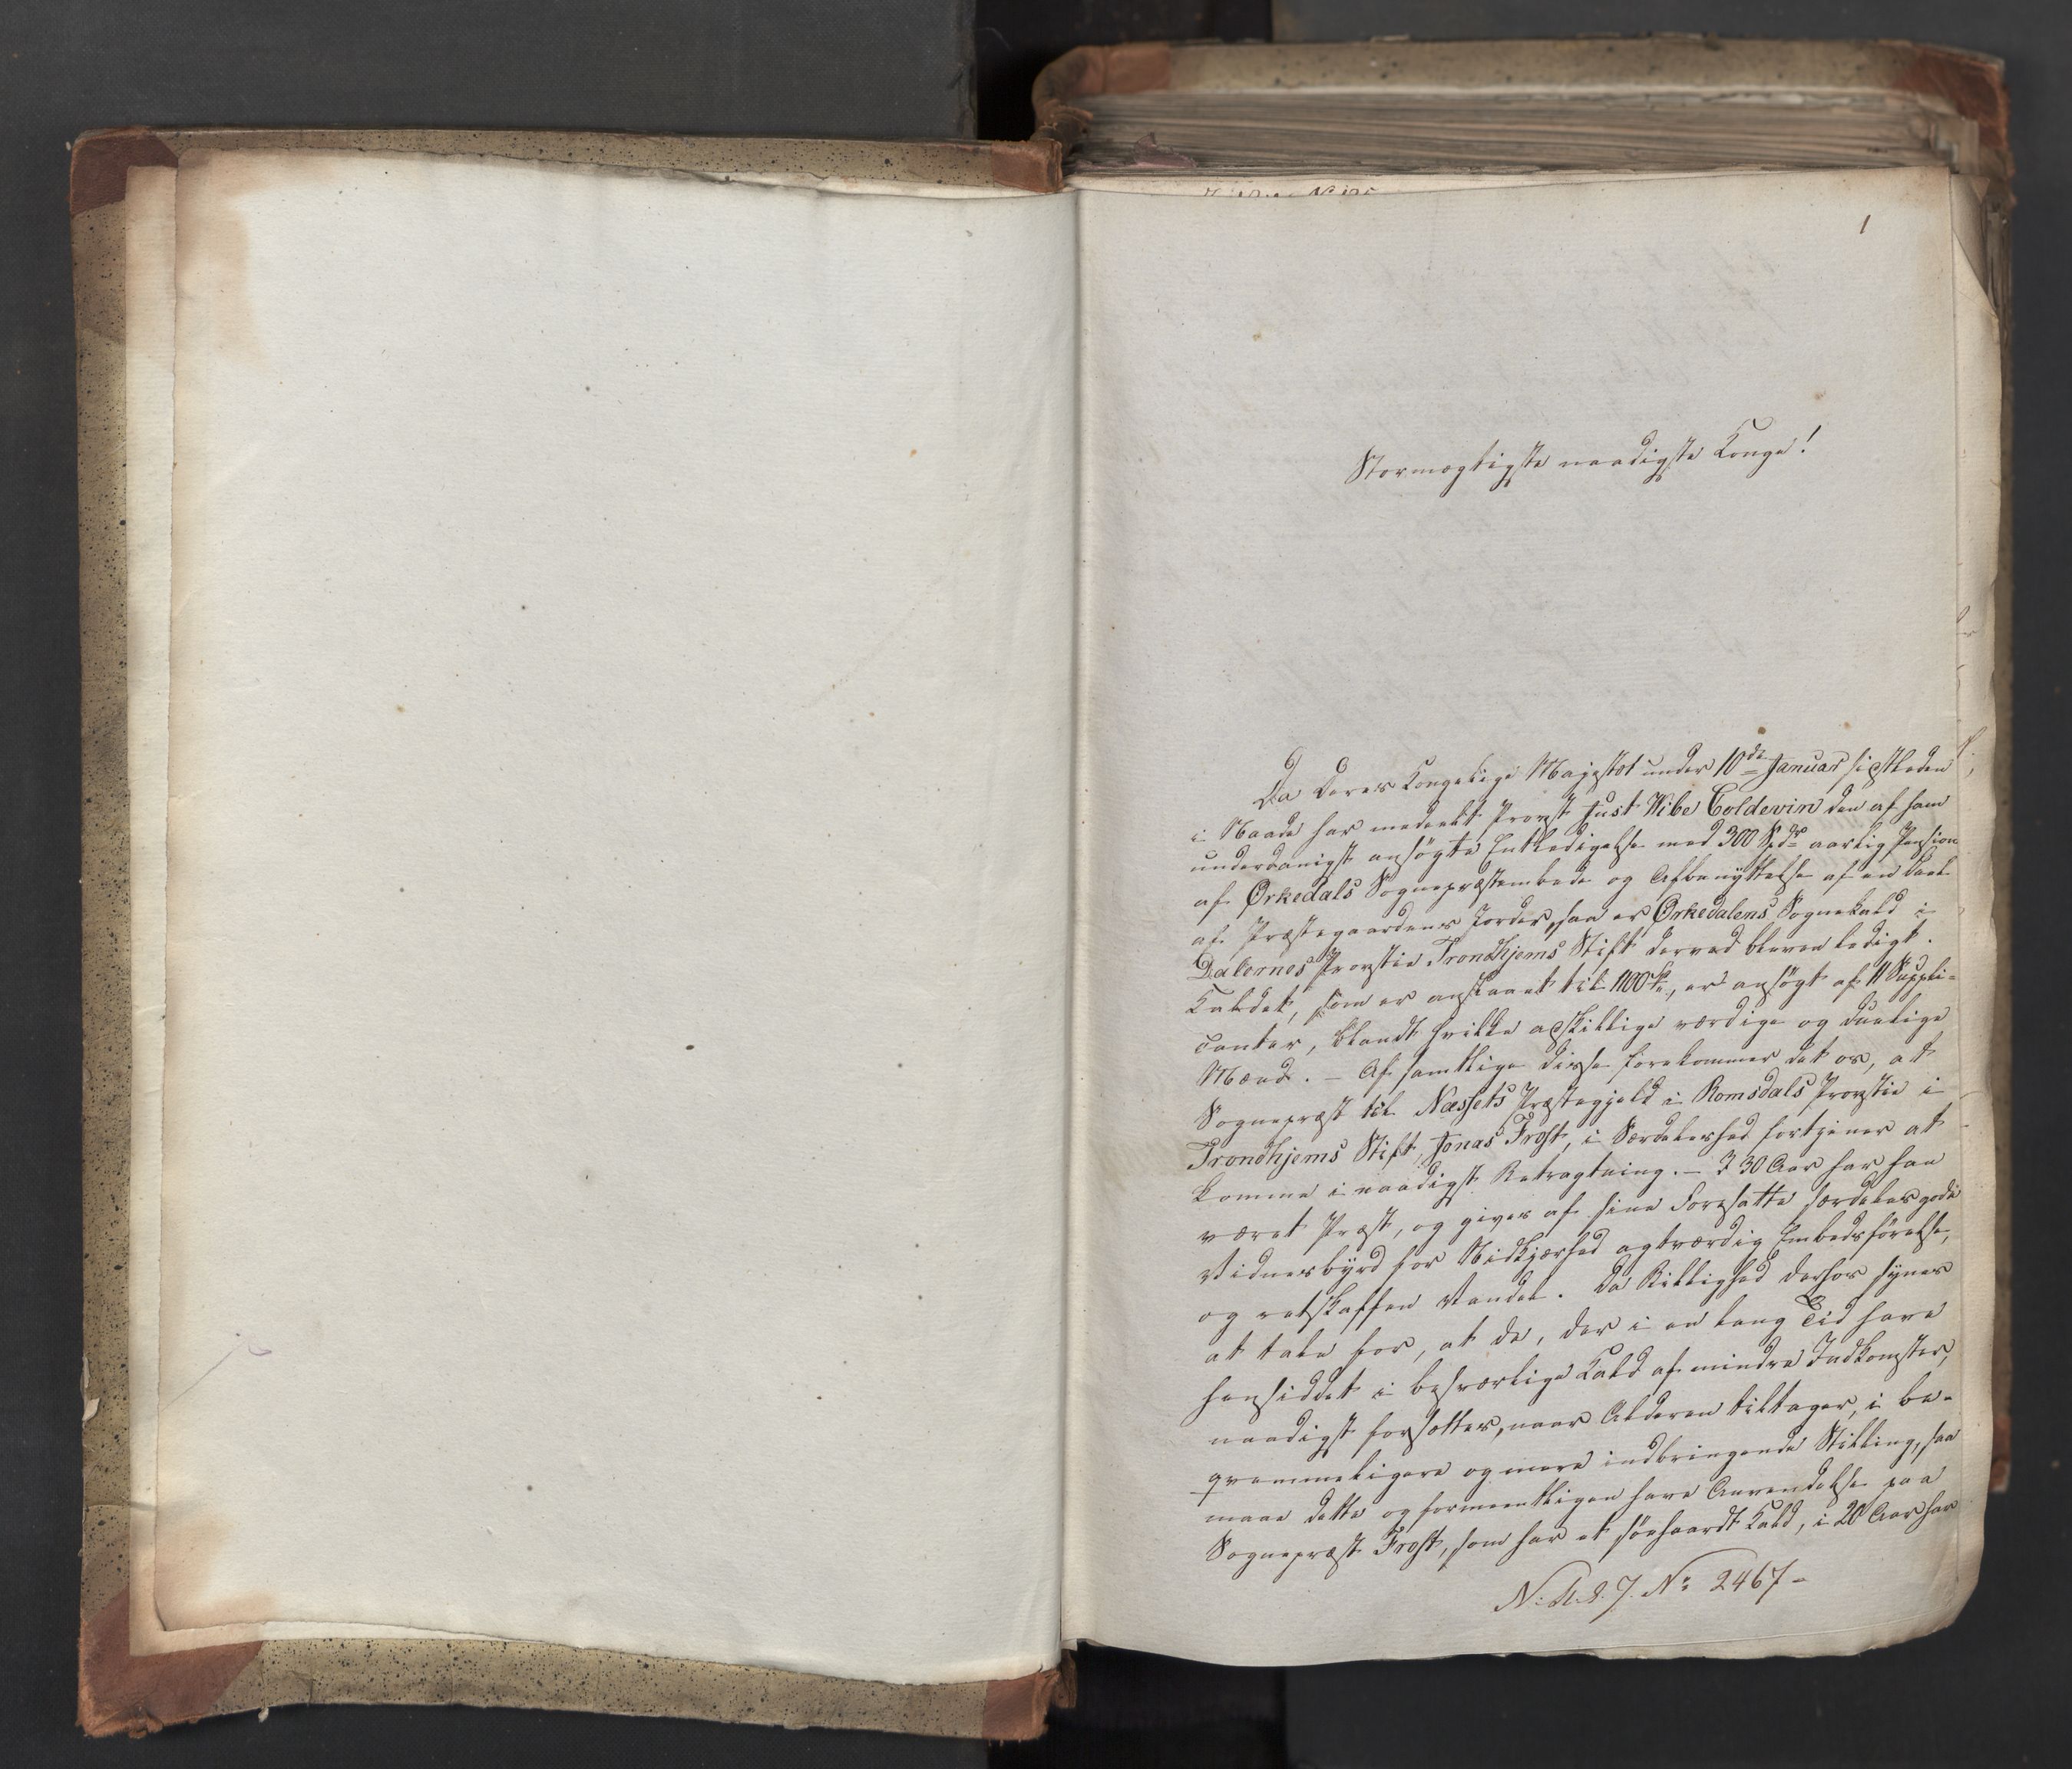 1
Stormægtigste naadigste Konge!
Da Deres Kongelige Majestæt under 10de Januar sidstleden
i Naade har meddeelt Provst Just Wibe Coldevin den af ham
underdanigst ansøgte Entledigelse med 300 Spdr aarlig Pension
af Ørkedals Sognepræstembede og Afbenyttelse af en Deel
af Præstegaardens Jorder, saa er Ørkedalens Sognekald i
Dalernes Provstie Trondhjems Stift derved bleven ledigt.
Kaldet, som er anslaaet til 1100 Sp, er ansøgt af 11 Suppli-
canter, blandt hvilke adskillige værdige og duelige
Mænd. – Af samtlige disse forekommer det os, at
Sognepræst til Næssets Præstegjeld i Romsdals Provstie i
Trondhjems Stift, Jonas Frost, i Særdeleshed fortjener at
komme i naadigst Betragtning. – I 30 Aar har han
været Præst, og gives af sine Foresatte særdeles gode
Vidnesbyrd for Nidkjærhed agtværdig Embedsførelse,
og retskaffen Vandel. Da Billighed derhos synes
at tale for, at de, der i en lang Tid have
hensiddet i besværlige Kald af mindre Indkomster,
naadigst forsættes, naar Alderen tiltager, i be-
qvemmeligere og mere indbringende Stilling, saa
maae dette og formeentligen have Anvendelse paa
Sognepræst Frost, som har et søehaardt Kald, i 20 Aar har
N. R. A. J. No 2467 –